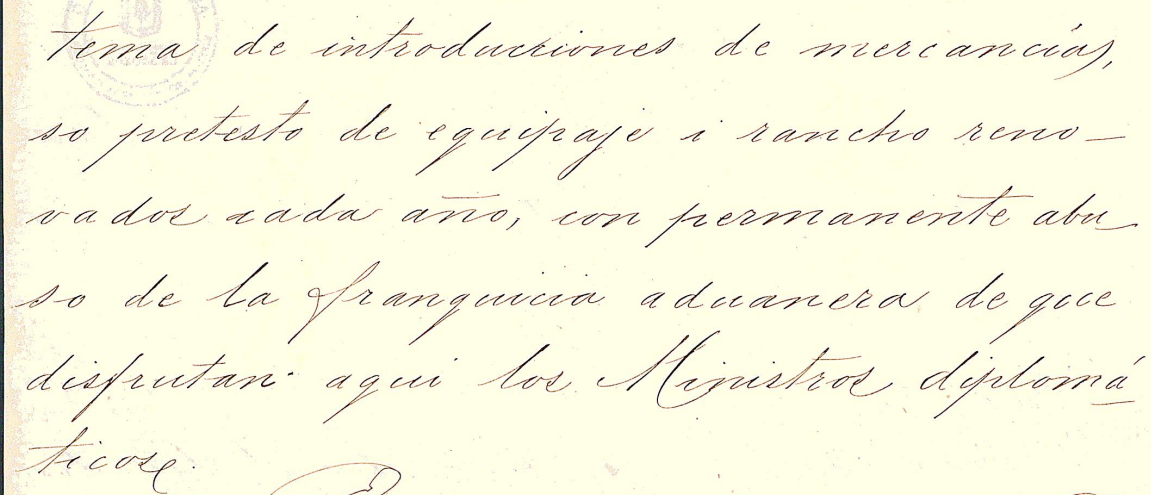 tema de introducciones de mercancías,
so pretesto de equipaje i rancho reno-
vados cada año, con permanente abu-
so de la franquicia aduanera de que
disfrutan aqui los Ministros diplomá-
ticos.